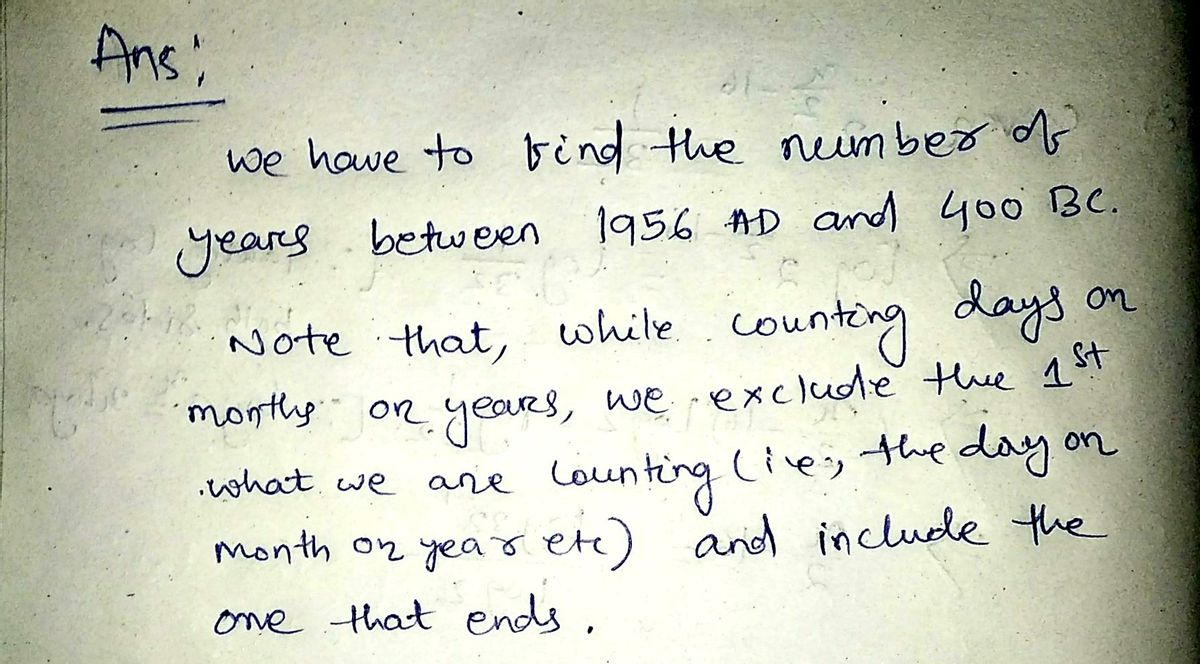 Ans:
we have to find the number of
years between 1956 AD and 400 BC.
Note that, while counting days or
months or years, we exclude the 1st
what we are counting (i.e., the day or
month or year etc) and include the
one that ends.